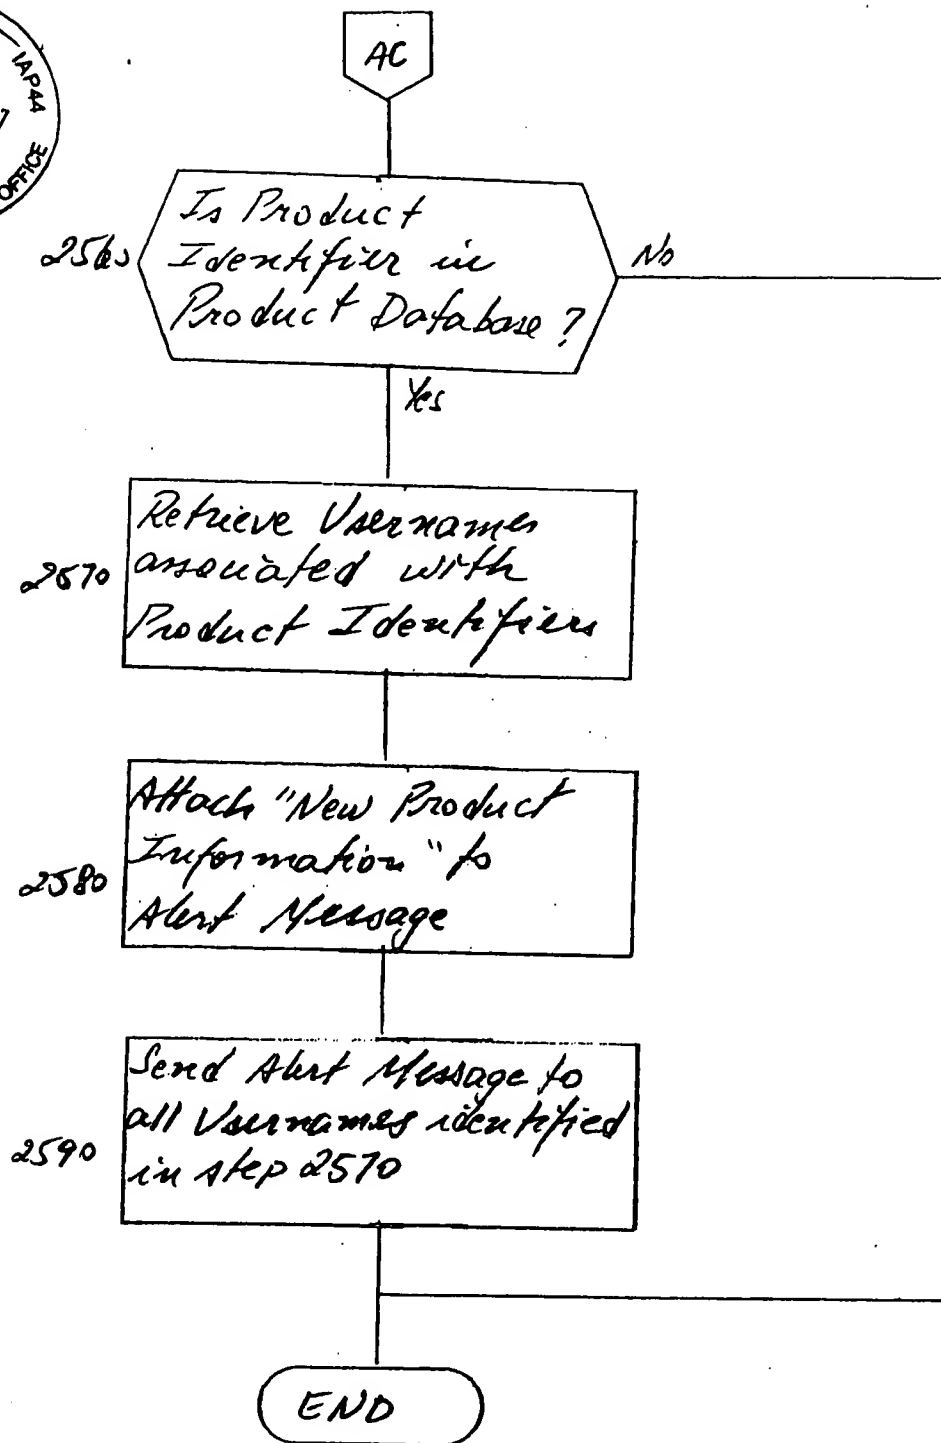 IAP44
OFFICE
AC
Is Product
Identifier in
Product Database ?
2560
No
Yes
Retrieve Usernames
associated with
Product Identifiers
2570
Attach "New Product
Information" to
Alert Message
2580
Send Alert Message to
all Usernames identified
in step 2570
2590
END